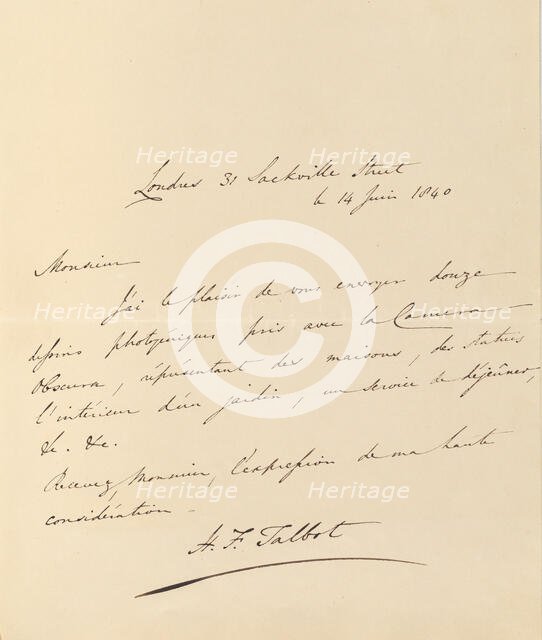 Londres 31 Sackville Street
le 14 Juin 1840
Monsieur
J'ai le plaisir de vous envoyer douze
dessins photogéniques pris avec la Camera
Obscura, réprésentant des maisons, des statues
l'intérieur d'un jardin, un service de déjeûner,
&c. &c.
Recevez, Monsieur, l'expression de ma haute
considération –
H. F. Talbot
Heritage Heritage Heritage
Heritage Heritage Heritage
Heritage Heritage
Heritage Heritage Heritage
©